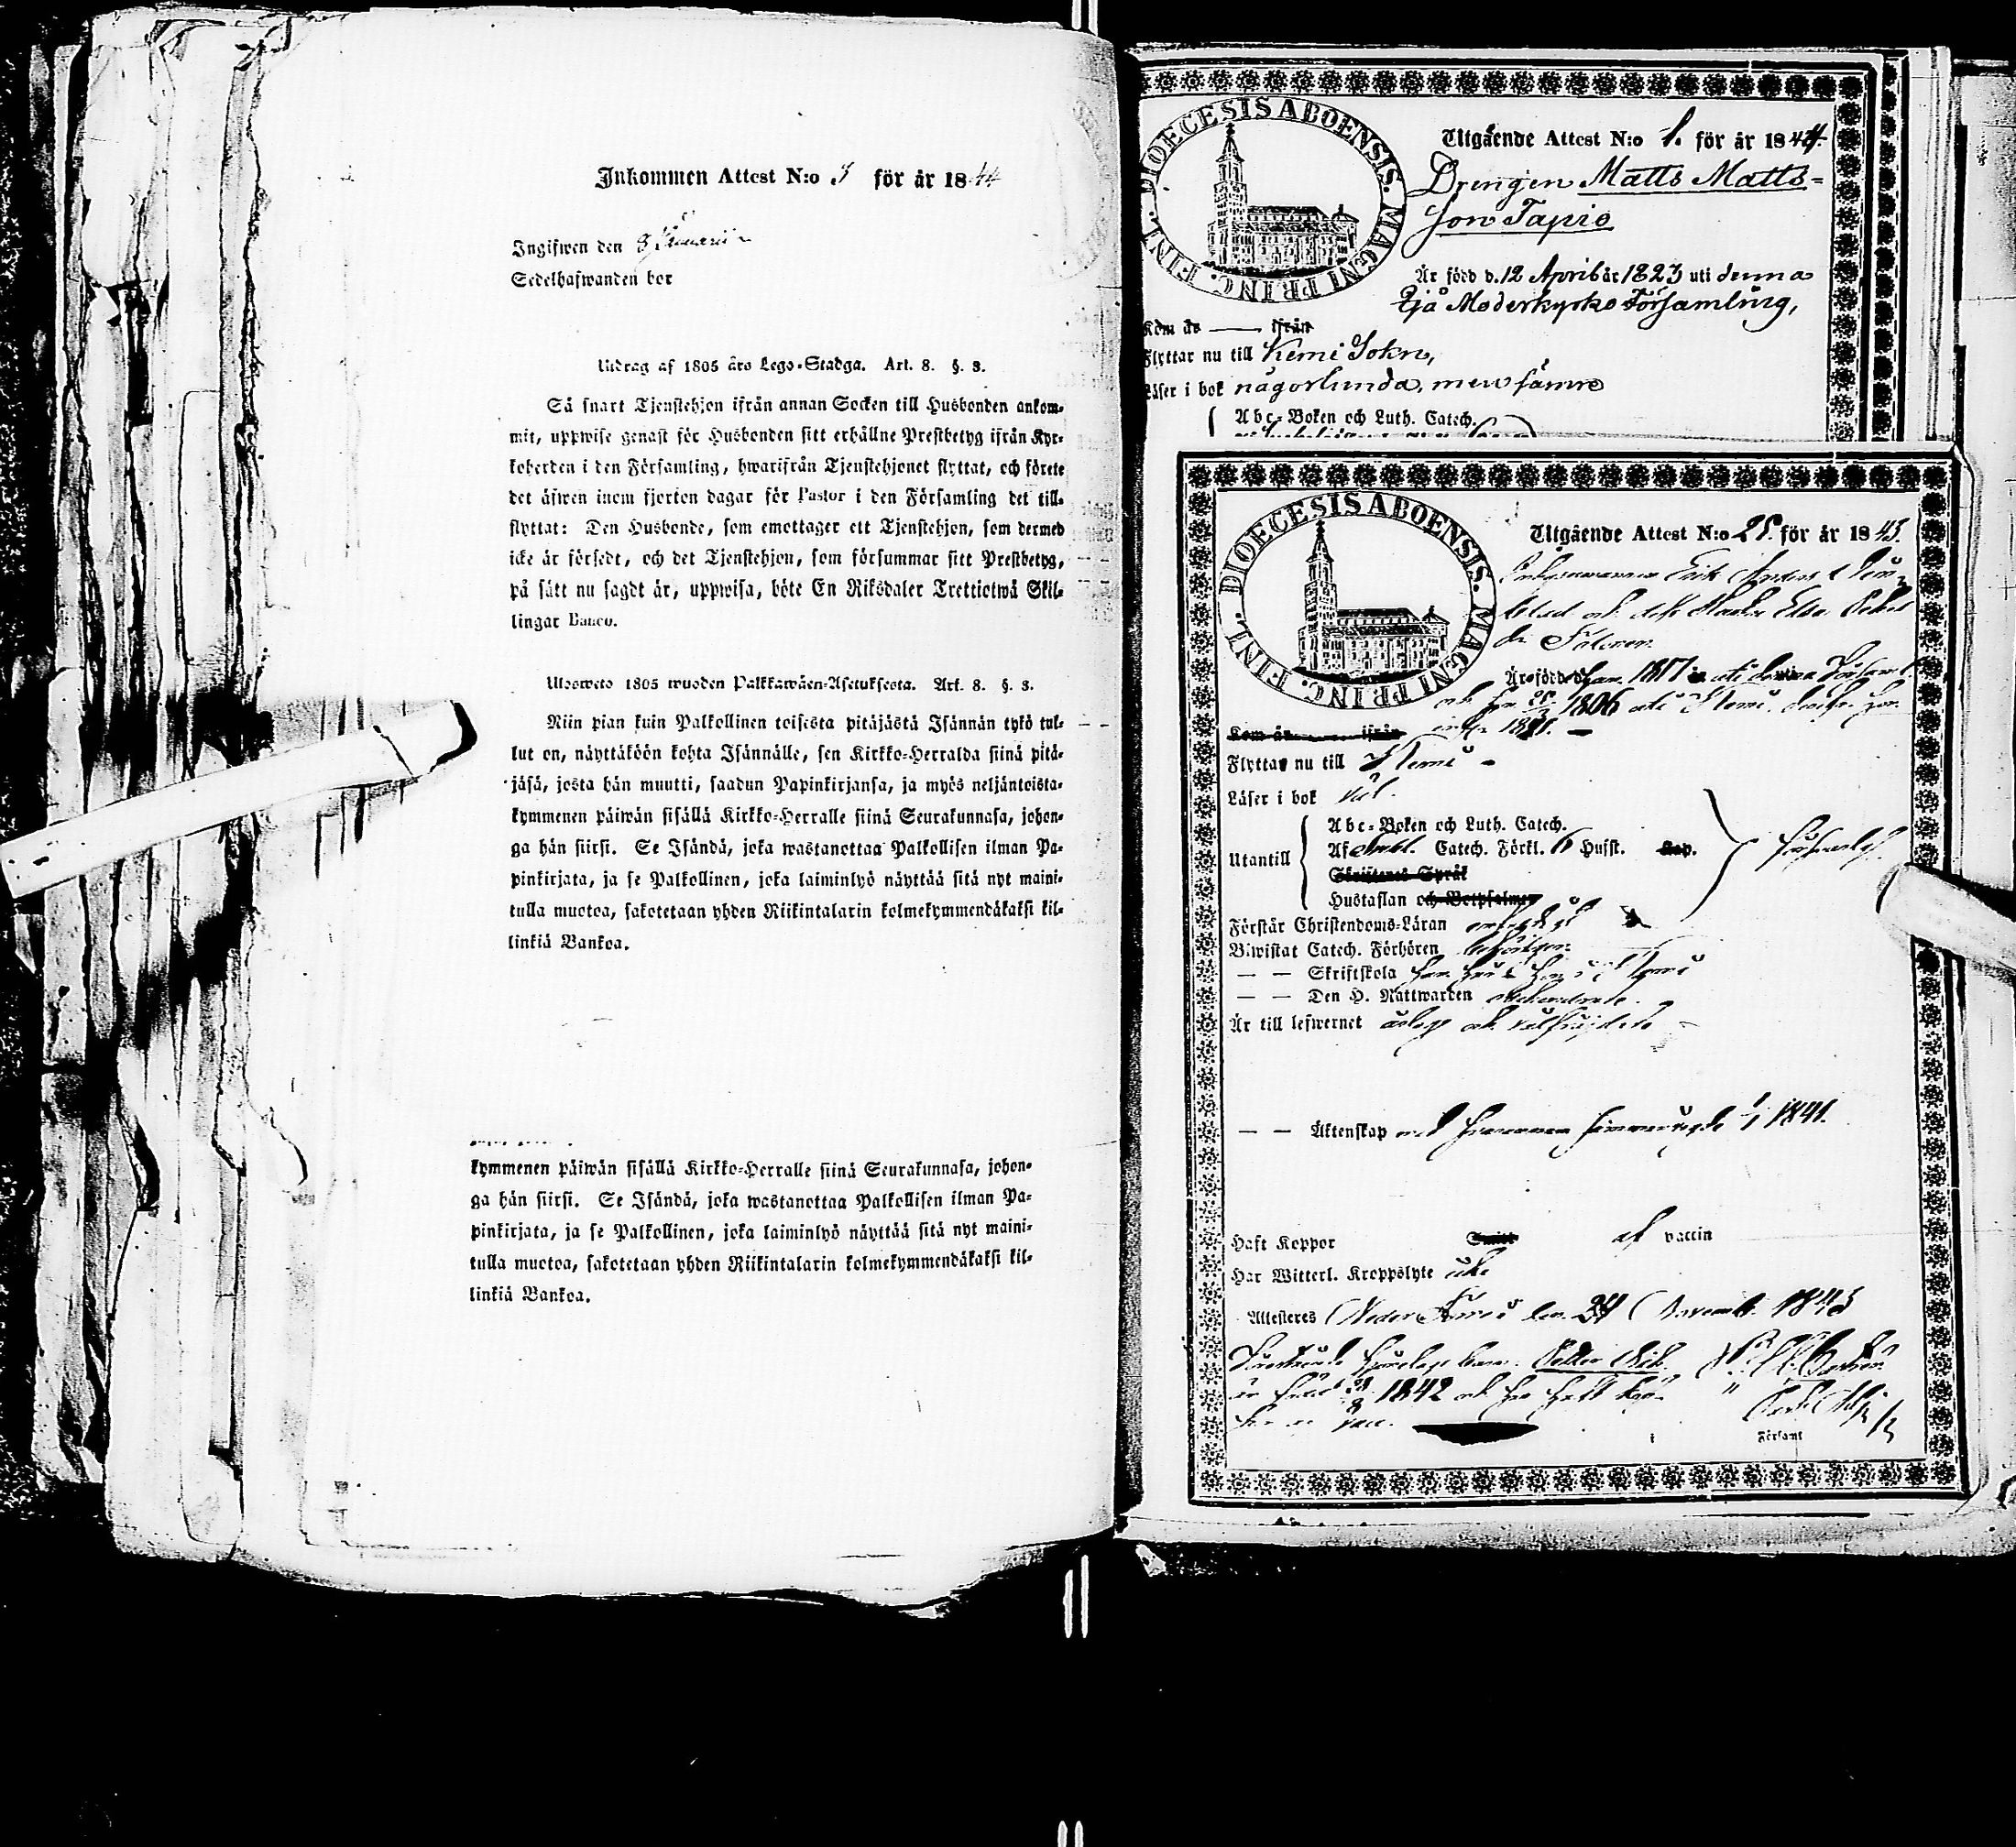 Inkommen Attest N:o 3 för år 1844
Ingifwen den 8 Januarii
Sedelhafwanden bor
Utdrag af 1805 års Lego-Stadga. Art. 8. §. 3.
Så snart Tjenstehjon ifrån annan Socken till Husbonden ankom-
mit, uppwise genast för Husbonden sitt erhållne Prestbetyg ifrån Kyr-
koherden i den Församling, hwarifrån Tjenstehjonet flyttat, och förete
det äfwen inom fjorton dagar för Pastor i den Församling det till-
flyttat: Den Husbonde, som emottager ett Tjenstehjon, som dermed
icke är försedt, och det Tjenstehjon, som försummar sitt Prestbetyg,
på sätt nu sagdt är, uppwisa, böte En Riksdaler Trettiotwå Skil-
lingar Banco.
Ulosweto 1805 wuoden Palkkawäen-Asetuksesta. Art. 8. §. 3.
Niin pian kuin Palkollinen toisesta pitäjästä Isännän tykö tul-
lut on, näyttäköön kohta Isännälle, sen Kirkko-Herralda siinä pitä-
jäsä, josta hän muutti, saadun Papinkirjansa, ja myös neljäntoista-
kymmenen päiwän sisällä Kirkko-Herralle siinä Seurakunnasa, johon-
ga hän siirsi. Se Isändä, joka wastanottaa Palkollisen ilman Pa-
pinkirjata, ja se Palkollinen, joka laiminlyö näyttää sitä nyt maini-
tulla muotoa, sakotetaan yhden Riikintalarin kolmekymmendäkaksi kil-
linkiä Bankoa.
kymmenen päiwän sisällä Kirkko-Herralle siinä Seurakunnasa, johon-
ga hän siirsi. Se Isändä, joka wastanottaa Palkollisen ilman Pa-
pinkirjata, ja se Palkollinen, joka laiminlyö näyttää sitä nyt maini-
tulla muotoa, sakotetaan yhden Riikintalarin kolmekymmendäkaksi kil-
linkiä Bankoa.
DIOECESIS ABOENSIS. MAGNI PRINC. FINL.
Utgående Attest N:o 1. för år 1844.
Drengen Matts Matts-
son Tapio
Är född d. 12 April år 1823 uti denna
Ijå Moderkyrko Församling,
Kom år — ifrån
Flyttar nu till Kemi Sokn,
Läser i bok någorlunda, men sämre
Abc-Boken och Luth. Catech.
DIOECESIS ABOENSIS. MAGNI PRINC. FINL.
Utgående Attest N:o 28. för år 1843.
Erik Anders
och dess Hustru Elsa
Är född 1817 uti denna
och hon 1806 uti Kemi
Kom år ifrån
Flyttar nu till Kemi
Läser i bok väl.
Utantill
Abc-Boken och Luth. Catech.
Af Catech. Förkl. 6 Hufst. Kap.
Skriftenes Språk
Hustaflan och Botpsalmer
Förstår Christendoms-Läran
Biwistat Catech. Förhören
— — Skriftskola
— — Den H. Nattwarden
Är till lefwernet och
— — Äktenskap 1/1 1841.
Haft Koppor Smitt af vaccin
Har Witterl. Kroppslyte icke
Attesteres Neder Torneå den 24 Novemb. 1843
1842 och
Församl